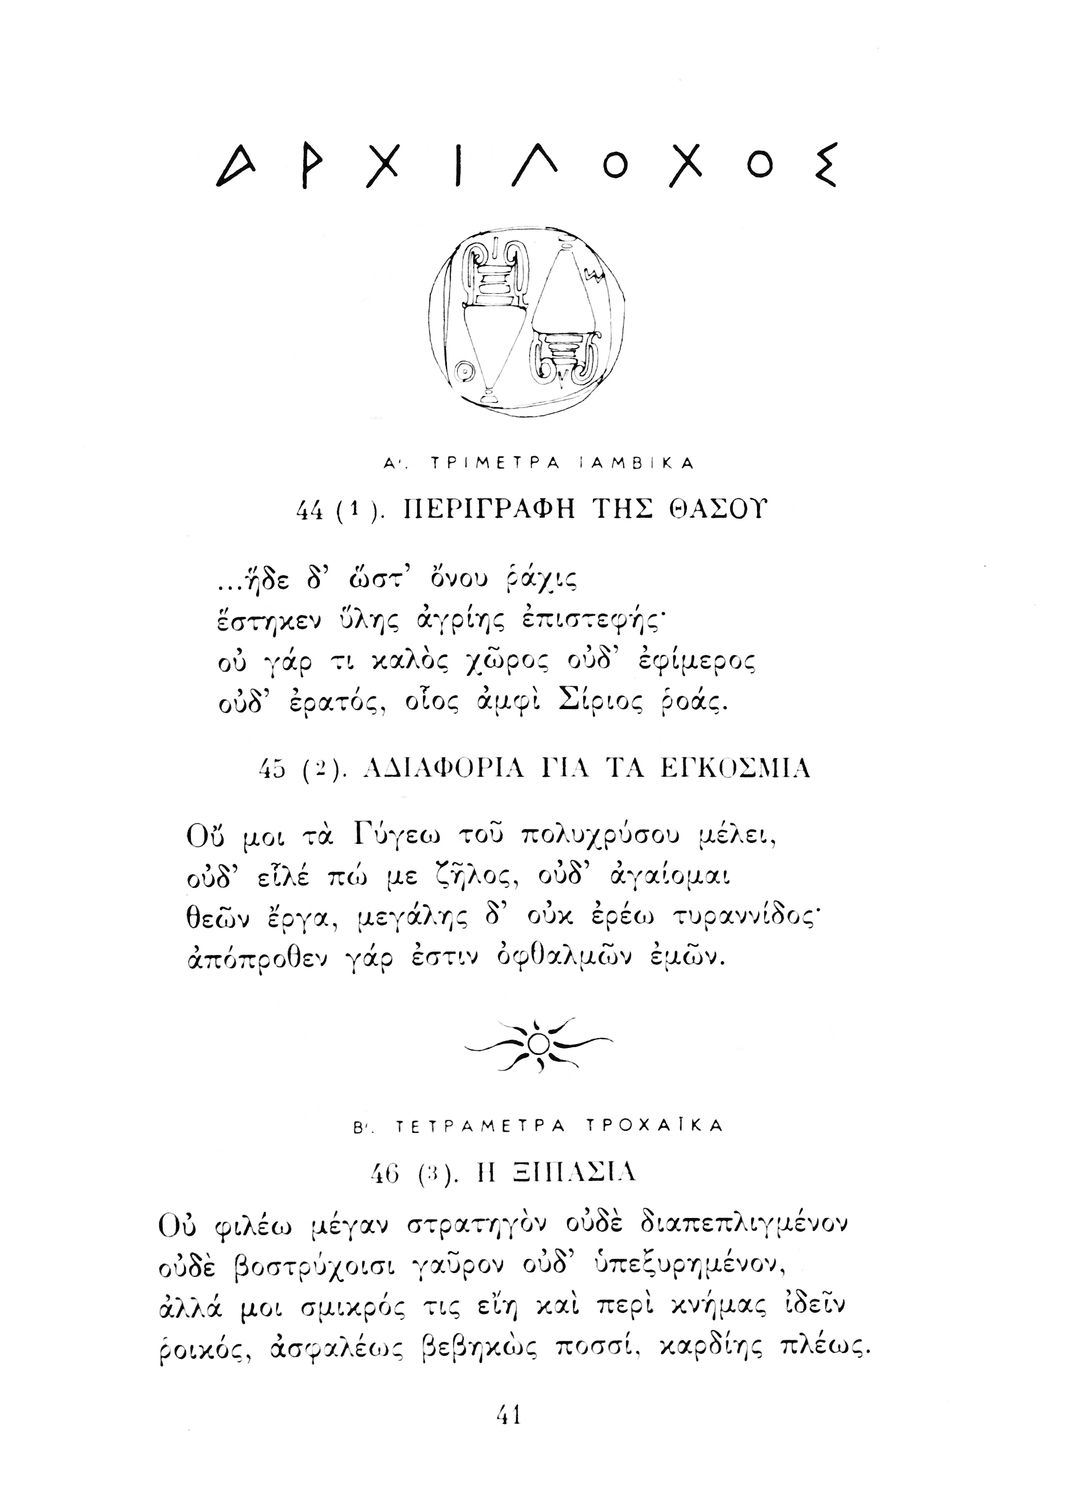 ΑΡΧΙΛΟΧΟΣ
Α'. ΤΡΙΜΕΤΡΑ ΙΑΜΒΙΚΑ
44 (1). ΠΕΡΙΓΡΑΦΗ ΤΗΣ ΘΑΣΟΥ
...ἥδε δ' ὥστ' ὄνου ῥάχις
ἕστηκεν ὕλης ἀγρίης ἐπιστεφής·
οὐ γάρ τι καλὸς χῶρος οὐδ' ἐφίμερος
οὐδ' ἐρατός, οἷος ἀμφὶ Σίριος ῥοάς.
45 (2). ΑΔΙΑΦΟΡΙΑ ΓΙΑ ΤΑ ΕΓΚΟΣΜΙΑ
Οὔ μοι τὰ Γύγεω τοῦ πολυχρύσου μέλει,
οὐδ' εἷλέ πώ με ζῆλος, οὐδ' ἀγαίομαι
θεῶν ἔργα, μεγάλης δ' οὐκ ἐρέω τυραννίδος·
ἀπόπροθεν γάρ ἐστιν ὀφθαλμῶν ἐμῶν.
Β'. ΤΕΤΡΑΜΕΤΡΑ ΤΡΟΧΑΪΚΑ
46 (3). Η ΞΙΠΑΣΙΑ
Οὐ φιλέω μέγαν στρατηγὸν οὐδὲ διαπεπλιγμένον
οὐδὲ βοστρύχοισι γαῦρον οὐδ' ὑπεξυρημένον,
ἀλλά μοι σμικρός τις εἴη καὶ περὶ κνήμας ἰδεῖν
ῥοικός, ἀσφαλέως βεβηκὼς ποσσί, καρδίης πλέως.
41